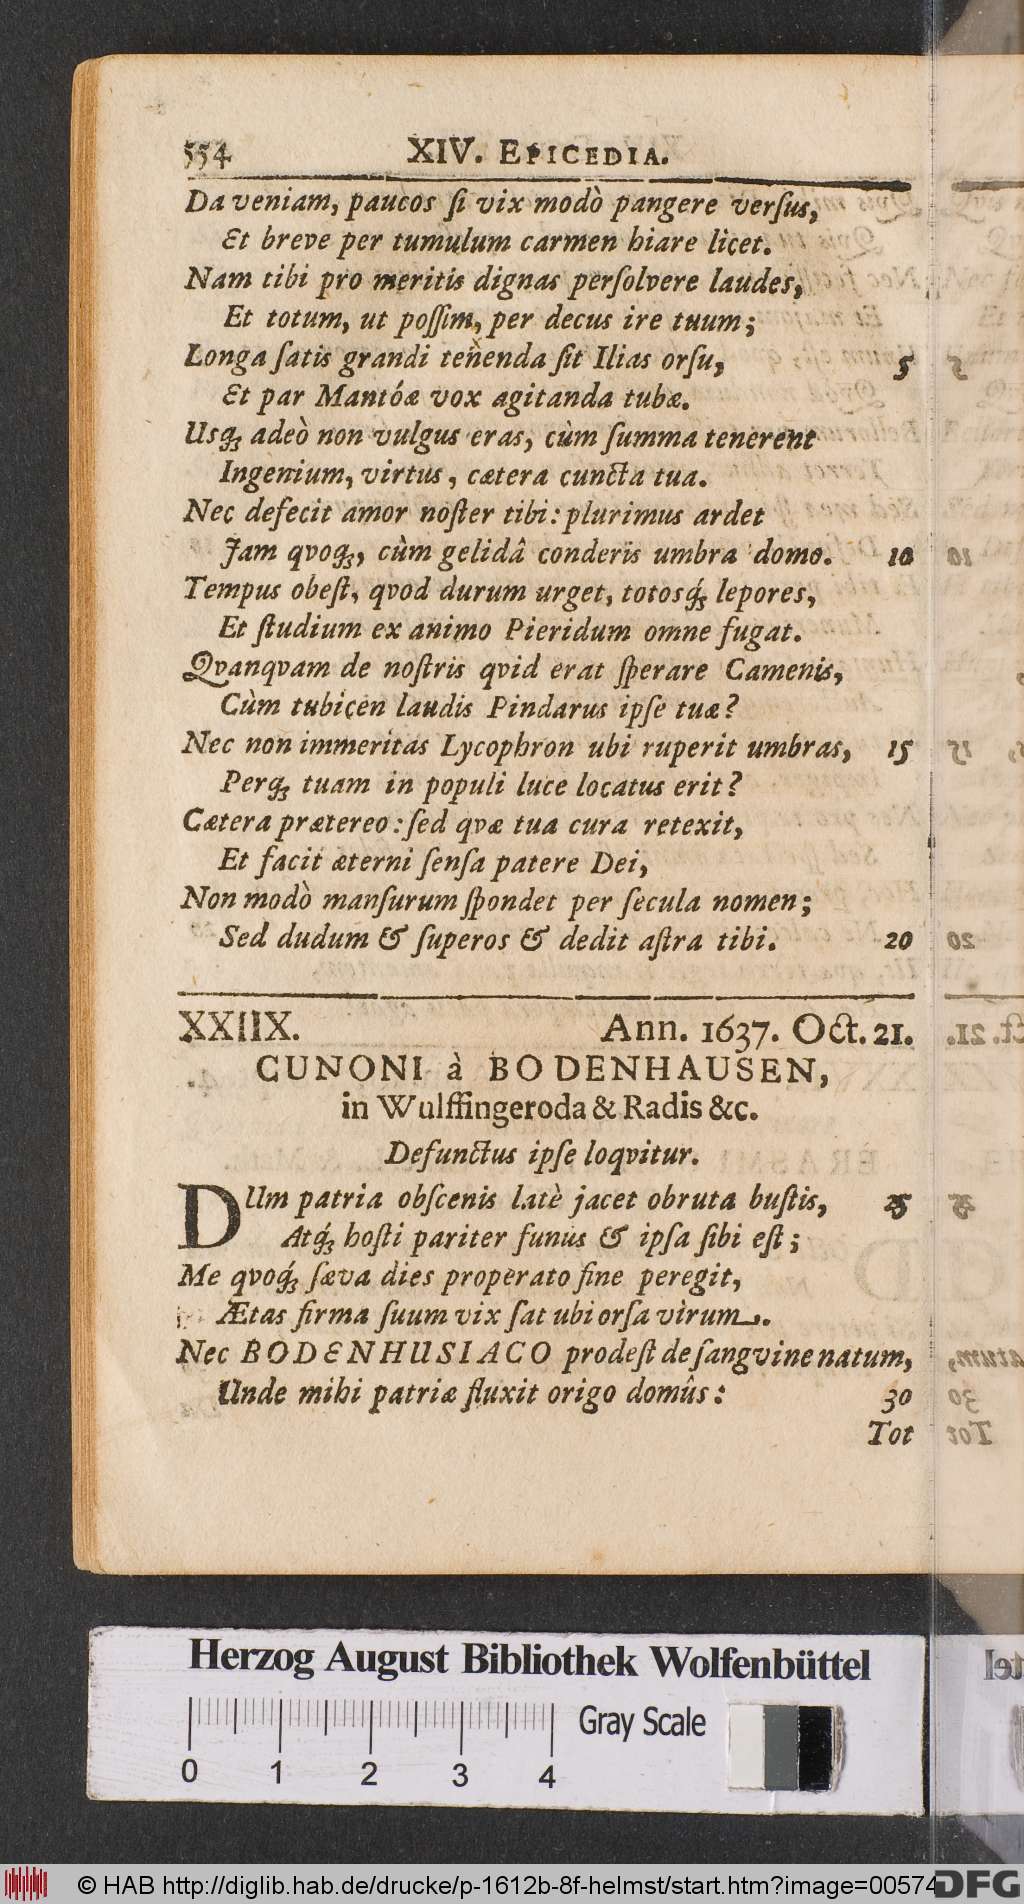 554 XIV. EPICEDIA.
Da veniam, paucos ſi vix modò pangere verſus,
Et breve per tumulum carmen hiare licet.
Nam tibi pro meritis dignas perſolvere laudes,
Et totum, ut poſſim, per decus ire tuum;
Longa ſatis grandi tenenda ſit Ilias orſu, 5
Et par Mantóæ vox agitanda tubæ.
Uſqꝫ adeò non vulgus eras, cùm ſumma tenerent
Ingenium, virtus, cætera cuncta tua.
Nec defecit amor noſter tibi: plurimus ardet
Jam qvoqꝫ, cùm gelidâ conderis umbra domo. 10
Tempus obeſt, qvod durum urget, totosqꝫ́ lepores,
Et ſtudium ex animo Pieridum omne fugat.
Qvanqvam de noſtris qvid erat ſperare Camenis,
Cùm tubicen laudis Pindarus ipſe tuæ?
Nec non immeritas Lycophron ubi ruperit umbras, 15
Perqꝫ tuam in populi luce locatus erit?
Cætera prætereo: ſed qvæ tua cura retexit,
Et facit æterni ſenſa patere Dei,
Non modò manſurum ſpondet per ſecula nomen;
Sed dudum & ſuperos & dedit aſtra tibi. 20
XXIIX. Ann. 1637. Oct. 21.
CUNONI à BODENHAUSEN,
in Wulffingeroda & Radis &c.
Defunctus ipſe loqvitur.
DUm patria obſcenis latè jacet obruta buſtis, 25
Atqꝫ́ hoſti pariter funus & ipſa ſibi eſt;
Me qvoqꝫ́ ſæva dies properato fine peregit,
Ætas firma ſuum vix ſat ubi orſa virum.
Nec BODENHUSIACO prodeſt de ſangvine natum,
Unde mihi patriæ fluxit origo domûs: 30
Tot
Herzog August Bibliothek Wolfenbüttel
Gray Scale
0 1 2 3 4
© HAB http://diglib.hab.de/drucke/p-1612b-8f-helmst/start.htm?image=00574
DFG